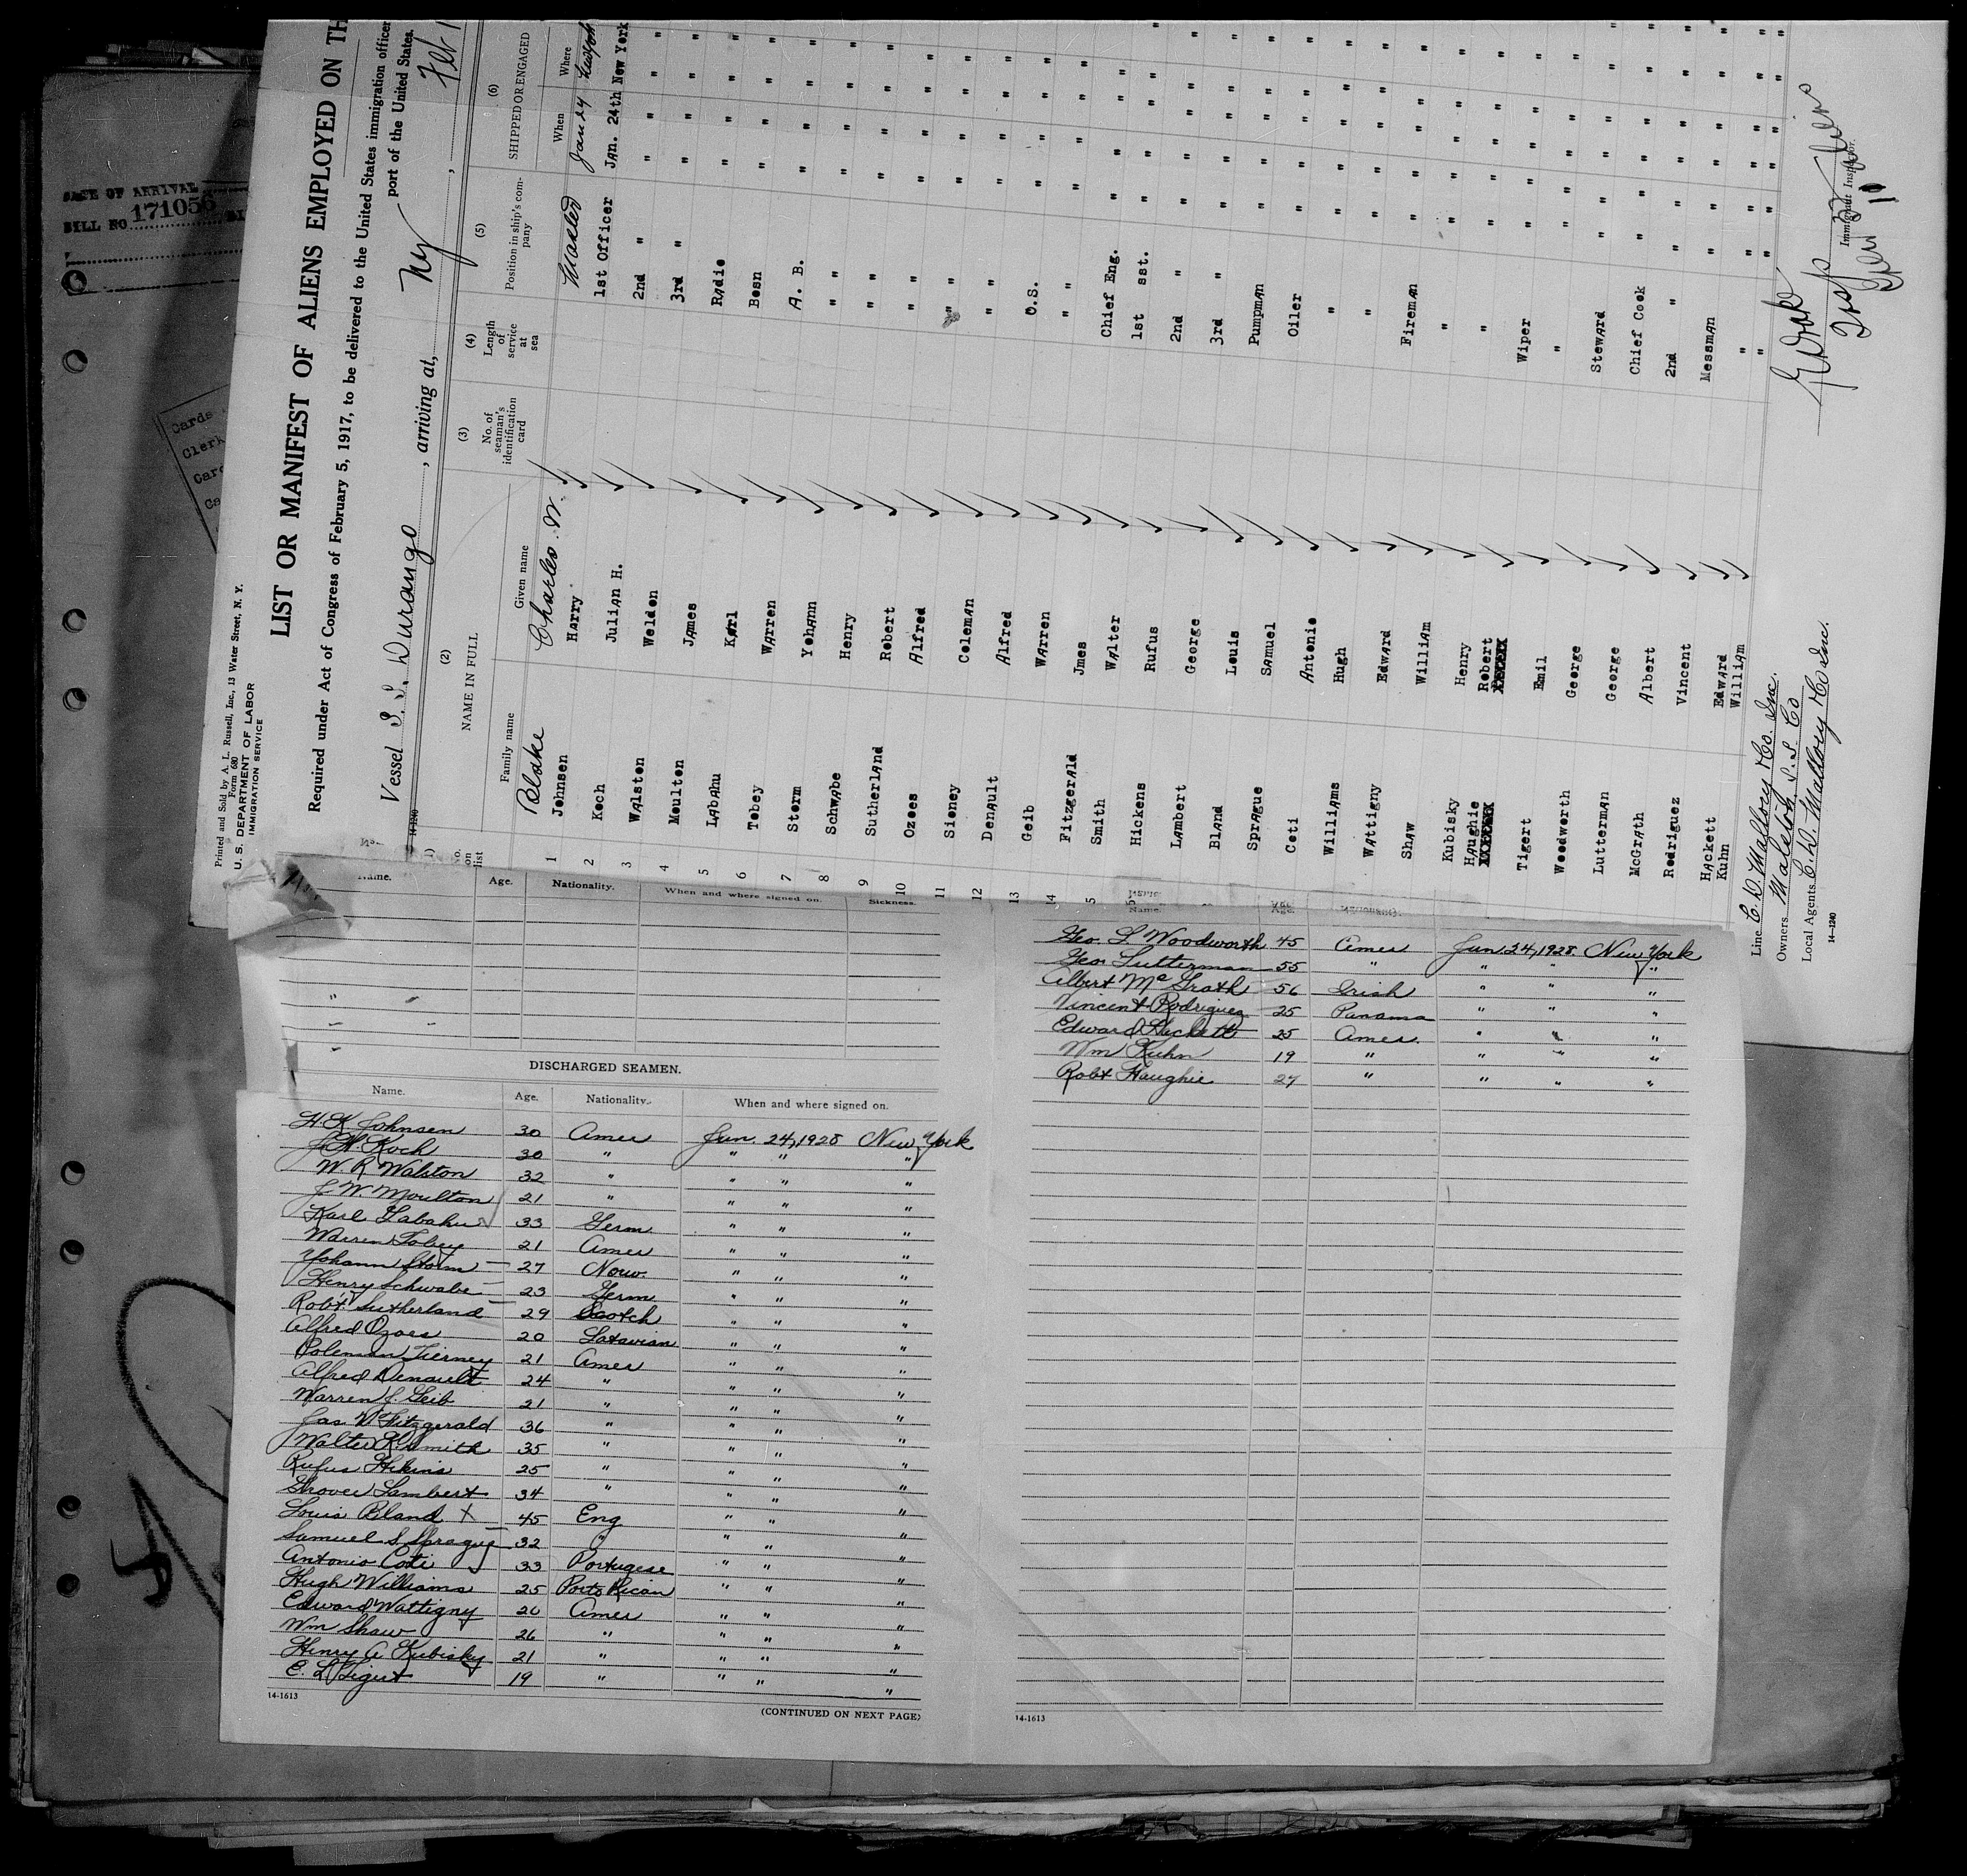 DATE OF ARRIVAL
BILL NO 171056
Cards
Clerk
Printed and Sold by A. L. Russell, Inc., 13 Water Street, N. Y.
Form 680
U. S. DEPARTMENT OF LABOR
IMMIGRATION SERVICE
LIST OR MANIFEST OF ALIENS EMPLOYED ON TH
Required under Act of Congress of February 5, 1917, to be delivered to the United States immigration officer
port of the United States.
Vessel S. S. Durango, arriving at, NY, Feb 1
14-1240
(1) (2) (3) (4) (5) (6)
No. on list NAME IN FULL No. of seaman's identification card Length of service at sea Position in ship's company SHIPPED OR ENGAGED
Family name Given name When Where
Blake Charles W. Master Jan 24
1 Johnsen Harry 1st Officer Jan. 24th New York
2 Koch Julian H. 2nd " " " "
3 Walston Weldon 3rd " " " "
4 Moulton James Radio " " "
5 Labahu Karl Bosn " " "
6 Tobey Warren A. B. " " "
7 Storm Yohann " " " " "
8 Schwabe Henry " " " " "
9 Sutherland Robert " " " " "
10 Ozoes Alfred " " " " "
11 Sioney Coleman " " " " "
12 Denault Alfred O.S. " " "
13 Geib Warren " " " "
14 Fitzgerald Jmes Chief Eng. " " "
5 Smith Walter 1st sst. " " "
6 Hickens Rufus 2nd " " " "
Lambert George 3rd " " " "
Bland Louis Pumpman " " "
Sprague Samuel Oiler " " "
Coti Antonio " " " "
Williams Hugh " " " "
Wattigny Edward Fireman " " "
Shaw William " " " "
Kubisky Henry " " " "
Haughie Robert Wiper " " "
Tigert Emil " " " "
Woodworth George Steward " " "
Lutterman George Chief Cook " " "
McGrath Albert 2nd " " " "
Rodriguez Vincent Messman " " "
Hackett Edward " " " "
Kuhn William " " " "
Line C. D. Mallory & Co. Inc.
Owners Malston S. S. Co
Local Agents C. D. Mallory & Co Inc.
14-1240
Immigrant Inspector.
Name. Age. Nationality. When and where signed on. Sickness.
DISCHARGED SEAMEN.
Name. Age. Nationality. When and where signed on.
H. K. Johnsen 30 Amer Jan. 24, 1928 New York
J. H. Koch 30 " " " "
W. R. Walston 32 " " " "
J. W. Moulton 21 " " " "
Karl Labahu 33 Germ " " "
Warren Tobey 21 Amer " " "
Yohann Storm 27 Norw. " " "
Henry Schwabe 23 Germ " " "
Robt Sutherland 29 Scotch " " "
Alfred Ozoes 20 Latavian " " "
Coleman Tierney 21 Amer " " "
Alfred Denault 24 " " " "
Warren J. Geib 21 " " " "
Jas W Fitzgerald 36 " " " "
Walter R. Smith 35 " " " "
Rufus Hikins 25 " " " "
Grover Lambert 34 " " " "
Louis Bland X 45 Eng " " "
Samuel S Sprague 32 " " " "
Antonio Coti 33 Portugese " " "
Hugh Williams 25 Porto Rican " " "
Edward Wattigny 26 Amer " " "
Wm Shaw 26 " " " "
Henry A Kubisky 21 " " " "
E. L. Tigert 19 " " " "
14-1613
(CONTINUED ON NEXT PAGE)
Name. Age.
Geo. L Woodworth 45 Amer Jan. 24, 1928. New York
Geo. Lutterman 55 " " " "
Albert McGrath 56 Irish " " "
Vincent Rodriguez 25 Panama " " "
Edward Hackett 25 Amer. " " "
Wm Kuhn 19 " " " "
Robt Haughie 27 " " " "
14-1613